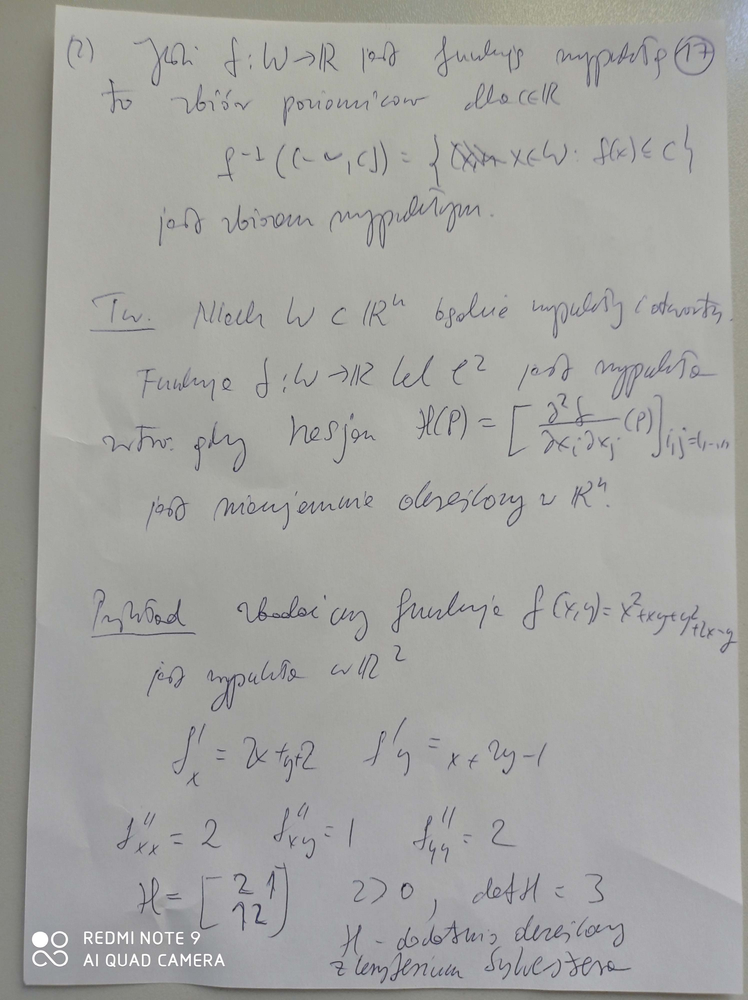 (2) Jeśli f: W → ℝ jest funkcją wypukłą (17)
to zbiór poziomicow dla c∈ℝ
f⁻¹((-∞, c]) = { x∈W : f(x) ≤ c }
jest zbiorem wypukłym.
Tw. Niech W ⊂ ℝⁿ będzie wypukły i otwarty.
Funkcja f: W → ℝ kl C² jest wypukła
wtw. gdy hesjan H(P) = [ ∂²f / ∂xᵢ∂xⱼ (P) ] i,j=1,...,n
jest nieujemnie określony w ℝⁿ.
Przykład zbadać czy funkcja f(x,y) = x²+xy+y²+2x-y
jest wypukła w ℝ²
f'ₓ = 2x+y+2 f'y = x+2y-1
f''xx = 2 f''xy = 1 f''yy = 2
H = [2 1
1 2] 2>0, det H = 3
H - dodatnio określony
z kryterium Sylvestera
REDMI NOTE 9
AI QUAD CAMERA